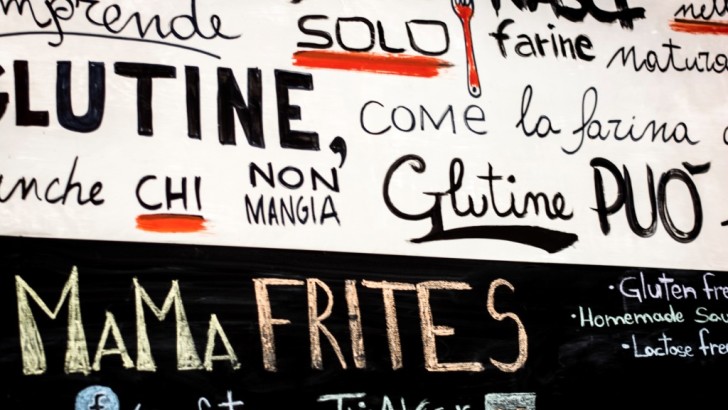 mprende SOLO farine natura
GLUTINE, COME la farina
anche CHI NON MANGIA Glutine PUÒ
MAMA FRITES
· Gluten fre
· Homemade Sau
· Lactose fre